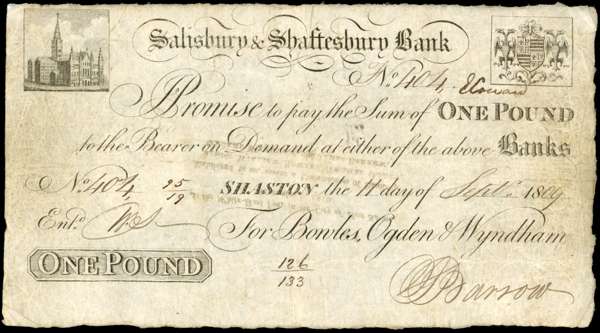 Salisbury & Shaftesbury Bank
No. 404.
I Promise to pay the Sum of ONE POUND
to the Bearer on Demand at either of the above Banks
No. 404 95/19 SHASTON the 11 day of Sept. 1809
Entd.
For Bowles, Ogden & Wyndham
ONE POUND
126
133
Barrow